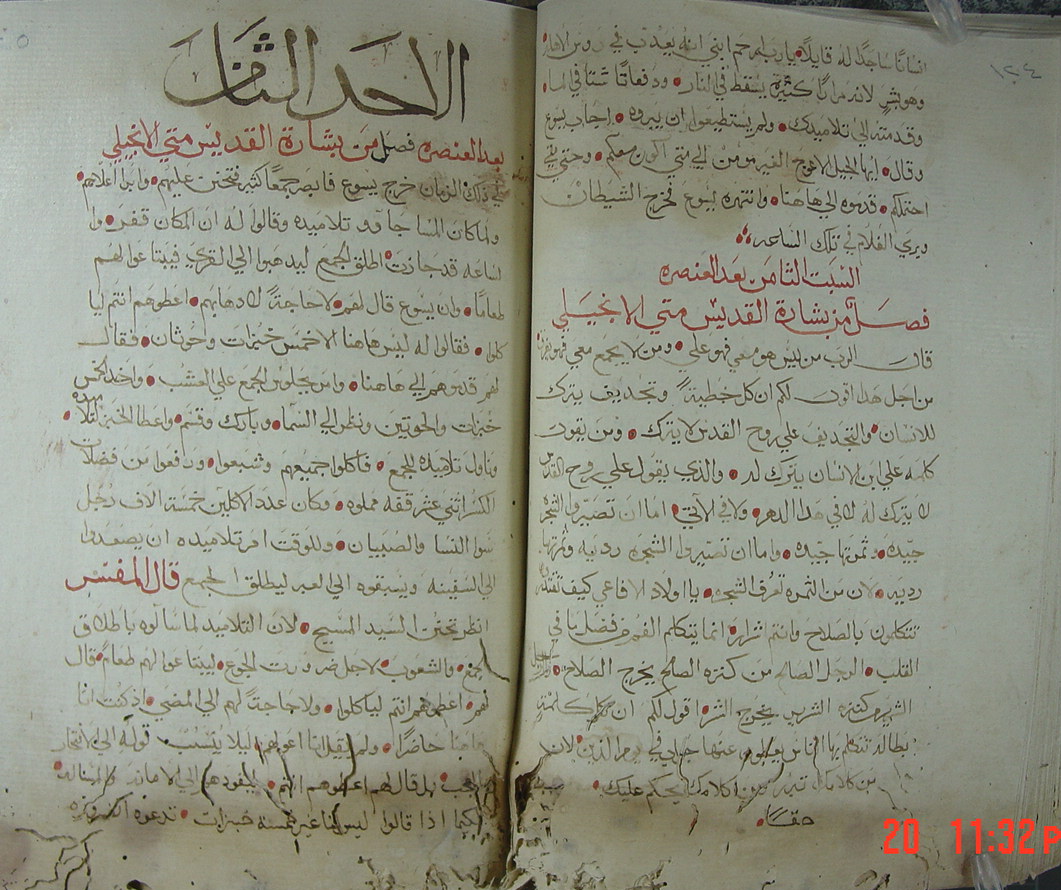 ١٢٤
انسانًا ساجدًا له قايلًا يارب ارحم ابني انه يعذب في روس الاهله
وهو بشرٍ لانه مرارًا كثيرة يسقط في النار ودفعاتًا شتا في الما
وقدمته الي تلاميدك ولم يستطيعوا ان يبروه اجاب يسوع
وقال ايها الجيل الاعوج الغير مومن الي متي اكون معكم وحتي متي
احتملكم قدموه الي هاهنا وانتهره يسوع فخرج الشيطان
وبري الغلام في تلك الساعه
السبت الثامن بعد العنصره
فصل من بشارة القديس متي الانجيلي
قال الرب من ليس هو معي فهو علي ومن لا يجمع معي فهو يفرق
من اجل هدا اقول لكم ان كل خطيةً وتجديف يترك
للانسان والتجديف علي روح القدس لا يترك ومن يقول
كلمه علي ابن الانسان يترك له والذي يقول علي روح القدس
لا يترك له لا في هدا الدهر ولا في الاتي اما ان تصيروا الشجره
جيده وثمرتها جيده واما ان تصيروا الشجره رديه وثمرتها
رديه لان من الثمره تعرف الشجره يا اولاد الافاعي كيف تقتدروا
تتكلمون بالصلاح وانتم شرار انما يتكلم الفم من فضل ما في
القلب الرجل الصالح من كنزه الصالح يخرج الصلاح والرجل
الشرير من كنزه الشرير يخرج الشر اقول لكم ان كل كلمةٍ
بطاله تتكلم بها الناس يعطون عنها جوابًا في يوم الدين لان
من كلامك تتبرر ومن كلامك يحكم عليك
حقًا
الاحد الثامن
بعد العنصره فصل من بشارة القديس متي الانجيلي
في ذلك الزمان خرج يسوع فابصر جمعًا كثير فتحنن عليهم وابرا اعلاهم
ولما كان المسا جا وو تلاميده وقالوا له ان المكان قفر وا
لساعه قد جازت اطلق الجمع ليدهبوا الي القري فيبتاعوا لهم
طعامًا وان يسوع قال لهم لا حاجةً لادهابهم اعطوهم انتم ليا
كلوا فقالوا له ليس هاهنا الا خمس خبزات وحوتان فقال
لهم قدموهم الي هاهنا وامر بجلوس الجمع علي العشب واخد الخمس
خبزات والحوتين ونظر الي السما وبارك وقسم واعطا الخبز لتلاميده
وناول تلاميده للجمع فاكلوا جميعهم وشبعوا ورفعوا من فضلات
الكسر اثني عشر قفه مملوه وكان عدد الاكلين خمسة الاف رجل
سوا النسا والصبيان وللوقت امر تلاميده ان يصعدوا
الي السفينه ويسبقوه الي العبر ليطلق الجموع قال المفسر
انظر تحنن السيد المسيح لان التلاميد لما سالوه باطلاق
الجمع والشعوب لاجل ضرورت الجوع ليبتاعوا لهم طعام قال
لهم اعطوهم انتم لياكلوا ولا حاجةً لهم الي المضي اذ كنت انا
هاهنا حاضرًا ولم يقل انا اعولهم ليلا ينسب قوله الي الافتخار
والعجب بل قال لهم اعطوهم انتم ليقودهم الي الامانه
لكيما اذا قالوا ليس لنا غير خمسة خبزات تدعوه